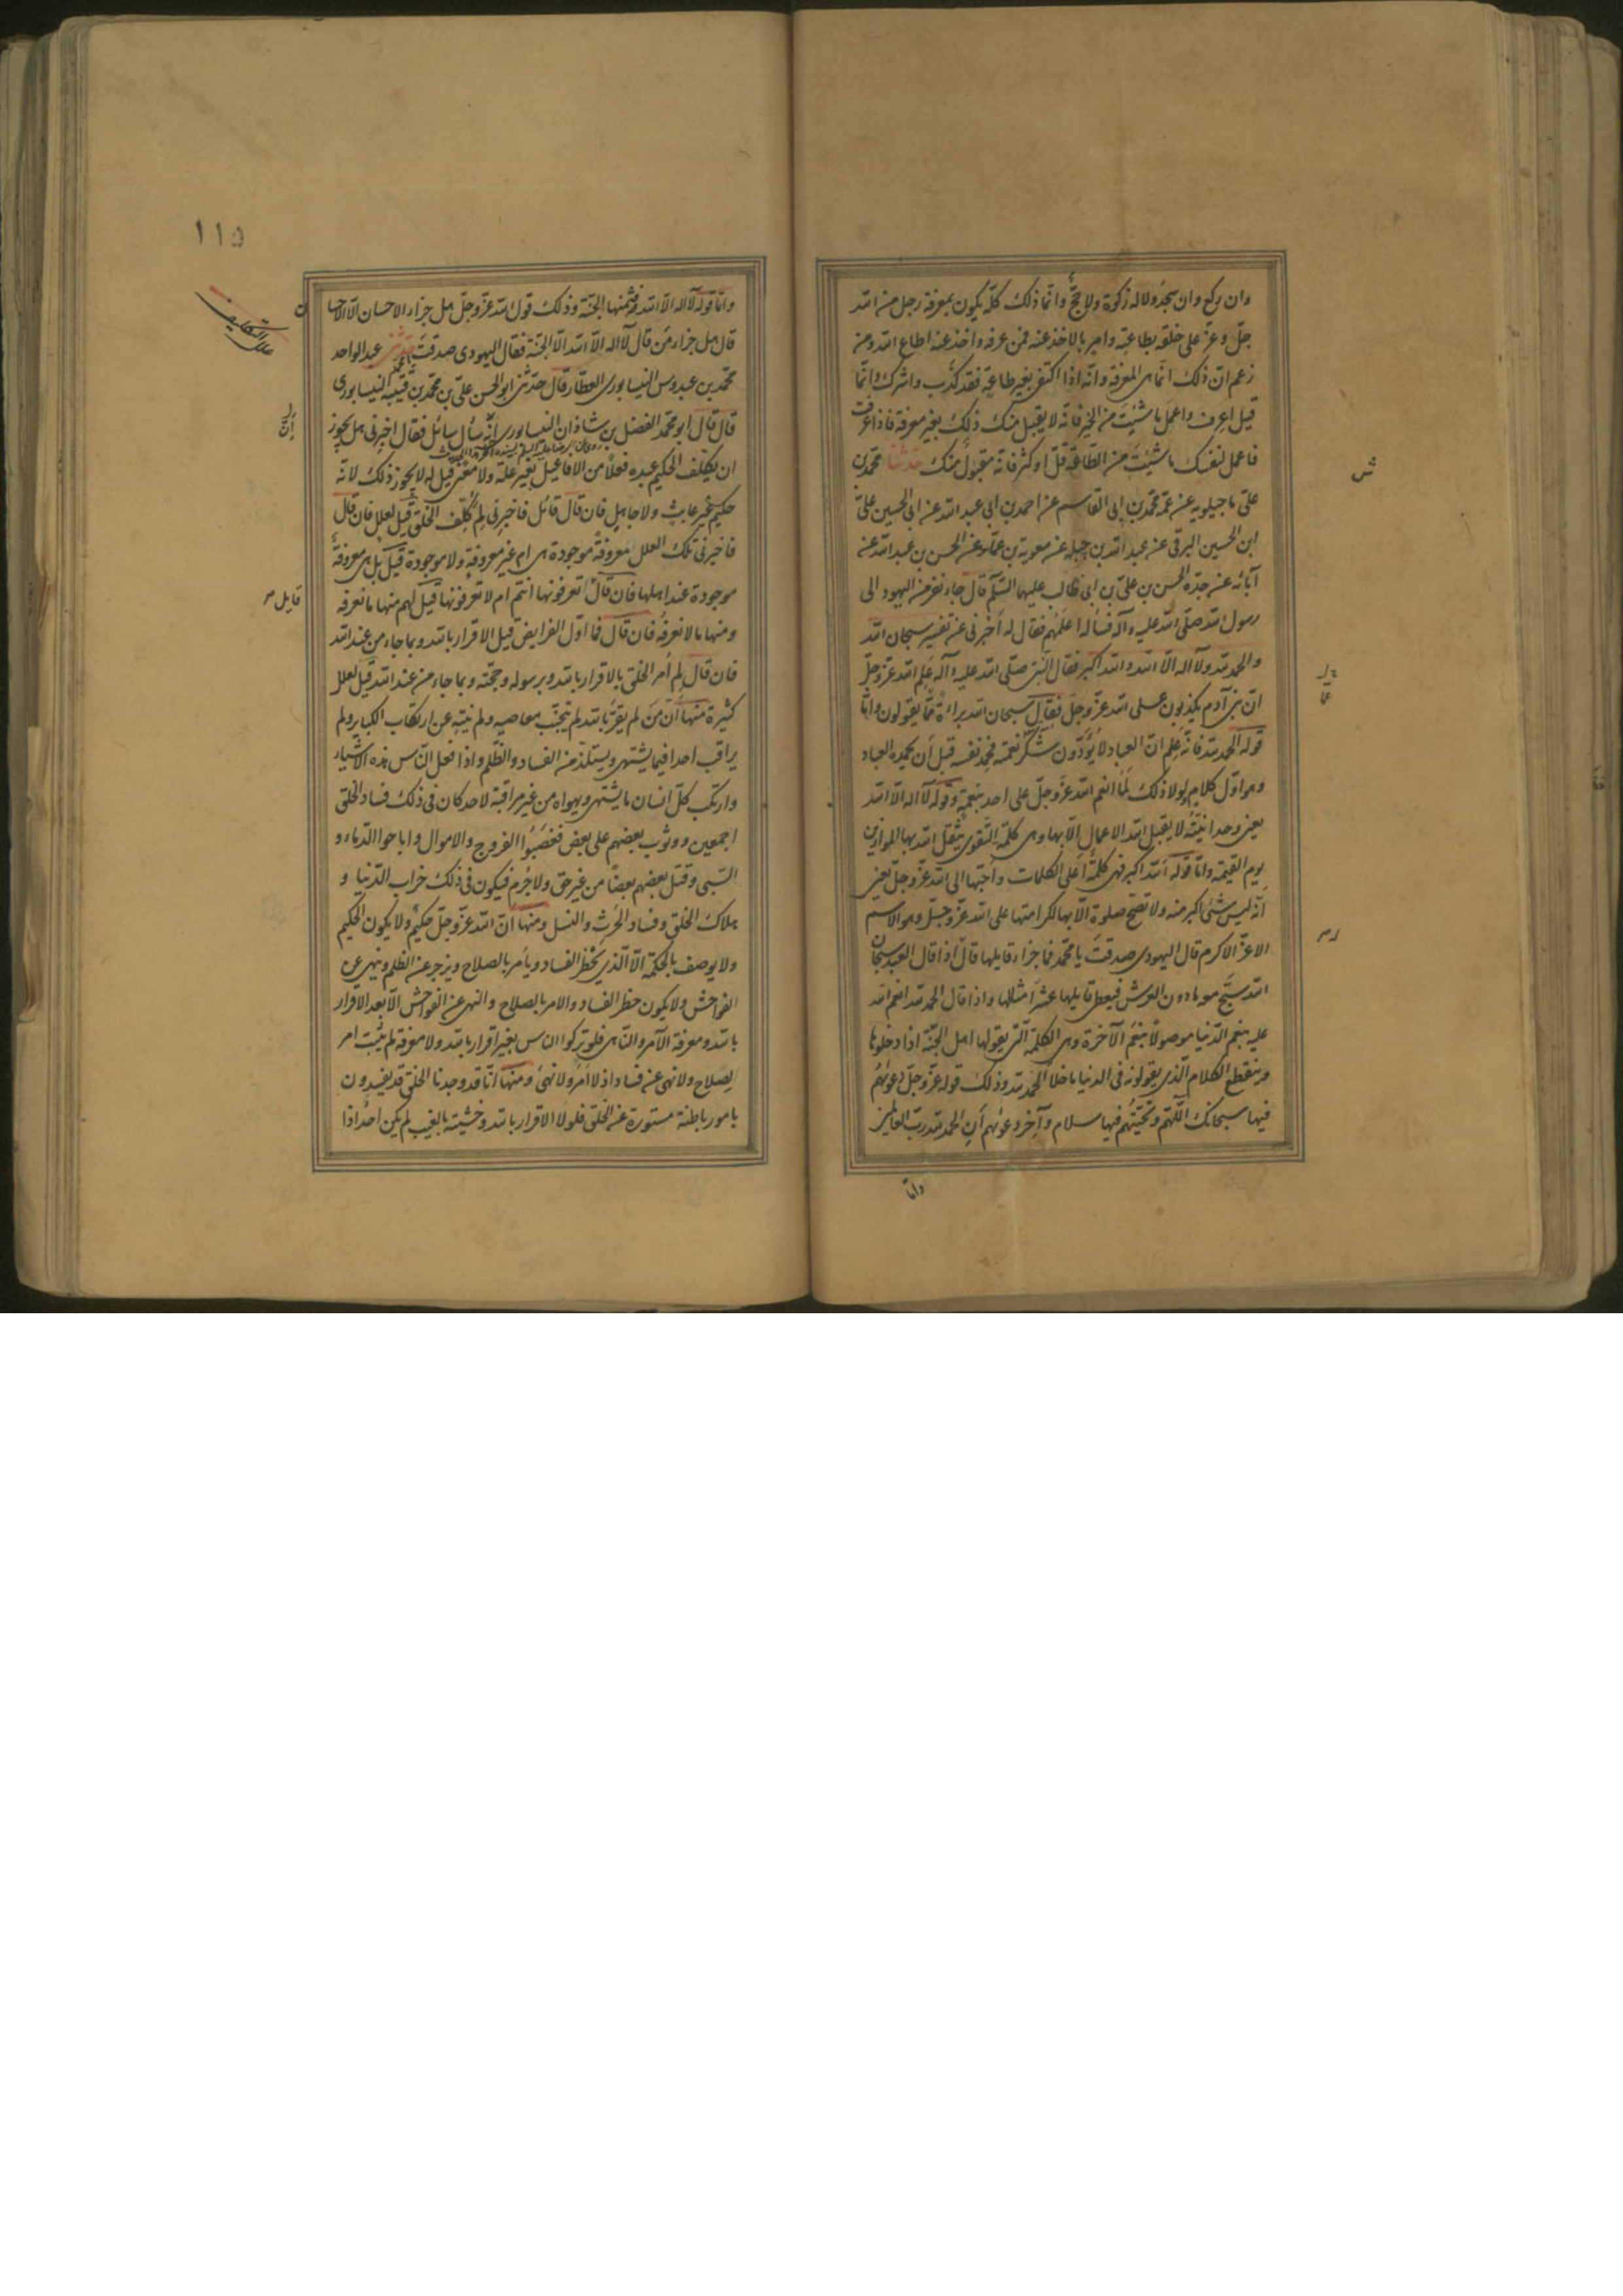 وان ركع وان سجد ولا له زكوة ولا حجّ وانّما ذلك كلّه يكون بمعرفة رجل من الله
جلّ وعزّ على خلقه بطاعته وامر بالاخذ عنه فمن عرفه واخذ عنه اطاع الله ومن
زعم انّ ذلك انّما هى المعرفة وانّه اذا اكتفى بغير طاعةٍ فقد كذب واشرك وانّما
قيل اعرف واعمل ما شئت من الخير فانّه لا يقبل منك ذلك بغير معرفة فاذا عرفت
فاعمل لنفسك ما شئت من الطّاعة قلّ او كثر فانّه مقبول منك حدثنا محمّد بن
علىّ ماجيلويه عن عمّه محمّد بن ابى القاسم عن احمد بن ابى عبد الله عن ابى الحسين علىّ
ابن الحسين البرقى عن عبد الله بن جبله عن معوية بن عمّار عن الحسن بن عبد الله عن
آبائه عن جدّه الحسن بن علىّ بن ابى طالب عليهما السّلم قال جاء نفر من اليهود الى
رسول الله صلّى الله عليه وآله فسأله اعلمهم فقال له اخبرنى عن تفسير سبحان الله
والحمد لله ولا اله الّا الله والله اكبر فقال النّبى صلّى الله عليه وآله علم الله عزّ وجلّ
انّ بنى آدم يكذبون على الله عزّ وجلّ فقال سبحان الله براءة ممّا يقولون وامّا
قوله الحمد لله فانّه علم انّ العباد لا يؤدّون شكر نعمته فحمد نفسه قبل ان يحمده العباد
وهو اوّل كلام لولا ذلك لما انعم الله عزّ وجلّ على احد بنعمة وقوله لا اله الّا الله
يعنى وحدانيّته لا يقبل الله الاعمال الّا بها وهى كلمة التّقوى يثقل الله بها الموازين
يوم القيمة وامّا قوله الله اكبر فهى كلمة اعلى الكلمات واحبّها الى الله عزّ وجلّ يعنى
انّه ليس شىء اكبر منه ولا تصحّ صلوة الّا بها لكرامتها على الله عزّ وجلّ وهو الاسم
الاعزّ الاكرم قال اليهودى صدقت يا محمّد فما جزاء قايلها قال اذا قال العبد سبحان
الله سبّح معه ما دون العرش فيعطى قايلها عشر امثالها واذا قال الحمد لله انعم الله
عليه بنعم الدّنيا موصولا بنعم الآخرة وهى الكلمة الّتى يقولها اهل الجنّة اذا دخلوها
وينقطع الكلام الّذى يقولونه فى الدنيا ما خلا الحمد لله وذلك قوله عزّ وجلّ دعوٰيهم
فيها سبحانك اللّهم وتحيّتهم فيها سلام وآخر دعوٰيهم ان الحمد لله ربّ العالمين
وامّا
١١٥
علل التكليف
وامّا قوله لا اله الّا الله فثمنها الجنّة وذلك قول الله عزّ وجلّ هل جزاء الاحسان الّا الاحسان
قال هل جزاء من قال لا اله الّا الله الّا الجنّة فقال اليهودى صدقت يا محمد حدثنى عبد الواحد
محمّد بن عبدوس النيسابورى العطّار قال حدّثنى ابو الحسن علىّ بن محمّد بن قتيبه النيسابورى
قال قال ابو محمّد الفضل بن شاذان النيسابورى انّه سأل سائل فقال اخبرنى هل يجوز
ان يكلّف الحكيم عبده فعلا من الافاعيل بغير علّة ولا معنى قيل له لا يجوز ذلك لانّه
حكيم غير عابث ولا جاهل فان قال قائل فاخبرنى لم كلّف الخلق قيل لعلل فان قال
فاخبرنى تلك العلل معروفة موجودة هى ام غير معروفة ولا موجودة قيل بل هى معروفة
موجودة عند اهلها فان قال اتعرفونها انتم ام لا تعرفونها قيل لهم منها ما نعرفه
قايل
ومنها ما لا نعرفه فان قال فما اوّل الفرايض قيل الاقرار بالله وبما جاء من عند الله
فان قال لم امر الخلق بالاقرار بالله وبرسوله وحجّته وبما جاء من عند الله قيل لعلل
كثيرة منها انّ من لم يقرّ بالله لم يتجنّب معاصيه ولم ينته عن ارتكاب الكباير ولم
يراقب احدا فيما يشتهى ويستلذّ من الفساد والظّلم واذا فعل النّاس هذه الاشياء
وارتكب كلّ انسان ما يشتهى ويهواه من غير مراقبة لاحد كان فى ذلك فساد الخلق
اجمعين ووثوب بعضهم على بعض فغصبوا الفروج والاموال واباحوا الدّماء و
السّبى وقتل بعضهم بعضا من غير حق ولا جرم فيكون فى ذلك خراب الدّنيا و
هلاك الخلق وفساد الحرث والنسل ومنها انّ الله عزّ وجلّ حكيم ولا يكون الحكيم
ولا يوصف بالحكمة الّا الّذى يحظر الفساد ويأمر بالصلاح ويزجر عن الظلم وينهى عن
الفواحش ولا يكون حظر الفساد والامر بالصلاح والنهى عن الفواحش الّا بعد الاقرار
بالله ومعرفة الآمر والنّاهى فلو ترك النّاس بغير اقرار بالله ولا معرفة لم يثبت امر
بصلاح ولا نهى عن فساد اذ لا آمر ولا ناهى ومنها انّا قد وجدنا الخلق قد يفسدون
بامور باطنة مستورة عن الخلق فلولا الاقرار بالله وخشيته بالغيب لم يكن احد اذا